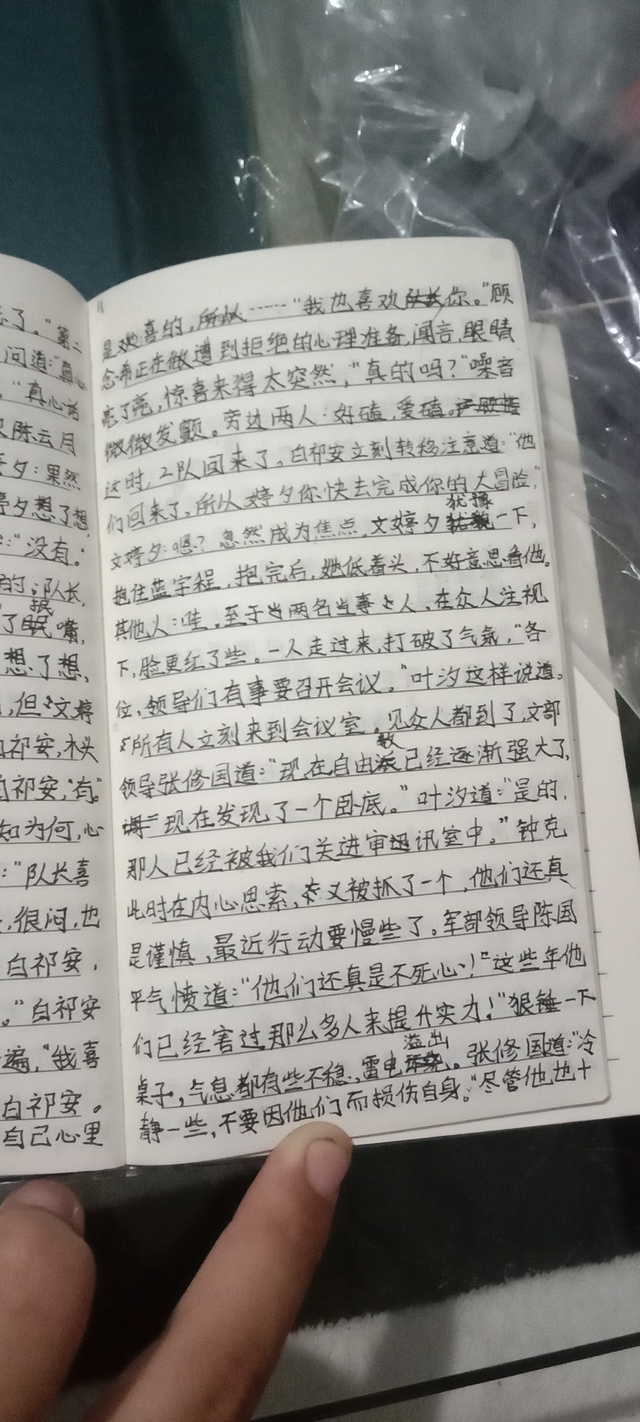 示了。"第二
问道："真心
"真心话
陈云月
夕：果然
婷夕想了想
："没有。"
的，队长，
了抿嘴，
想了想，
，但文婷
白祁安，木头
白祁安，"有。"
知为何，心
："队长喜
，很闷，也
白祁安，
。"白祁安
遍，"我喜
白祁安。
自己心里
是欢喜的，所以……"我也喜欢你。"顾
念希正在做遭到拒绝的心理准备，闻言，眼睛
亮了亮，惊喜来得太突然，"真的吗？"嗓音
微微发颤。旁边两人：好磕，爱磕。
这时，2队回来了。白祁安立刻转移注意道："他
们回来了，所以婷夕你快去完成你的大冒险。"
文婷夕：嗯？忽然成为焦点，文婷夕犹豫一下，
抱住蓝宇程，抱完后，她低着头，不好意思看他。
其他人：哇。至于当两名当事人，在众人注视
下，脸更红了些。一人走过来，打破了气氛，"各
位，领导们有事要召开会议。"叶汐这样说道。
所有人立刻来到会议室。见众人都到了，文部
领导张修国道："现在自由教已经逐渐强大了，
现在发现了一个卧底。"叶汐道："是的，
那人已经被我们关进审讯室中。"钟克
此时在内心思索，又被抓了一个，他们还真
是谨慎，最近行动要慢些了。军部领导陈国
平气愤道："他们还真是不死心！""这些年他
们已经害过那么多人来提升实力！"狠锤一下
桌子，气息都有些不稳，雷电溢出。张修国道："冷
静一些，不要因他们而损伤自身。"尽管他也十